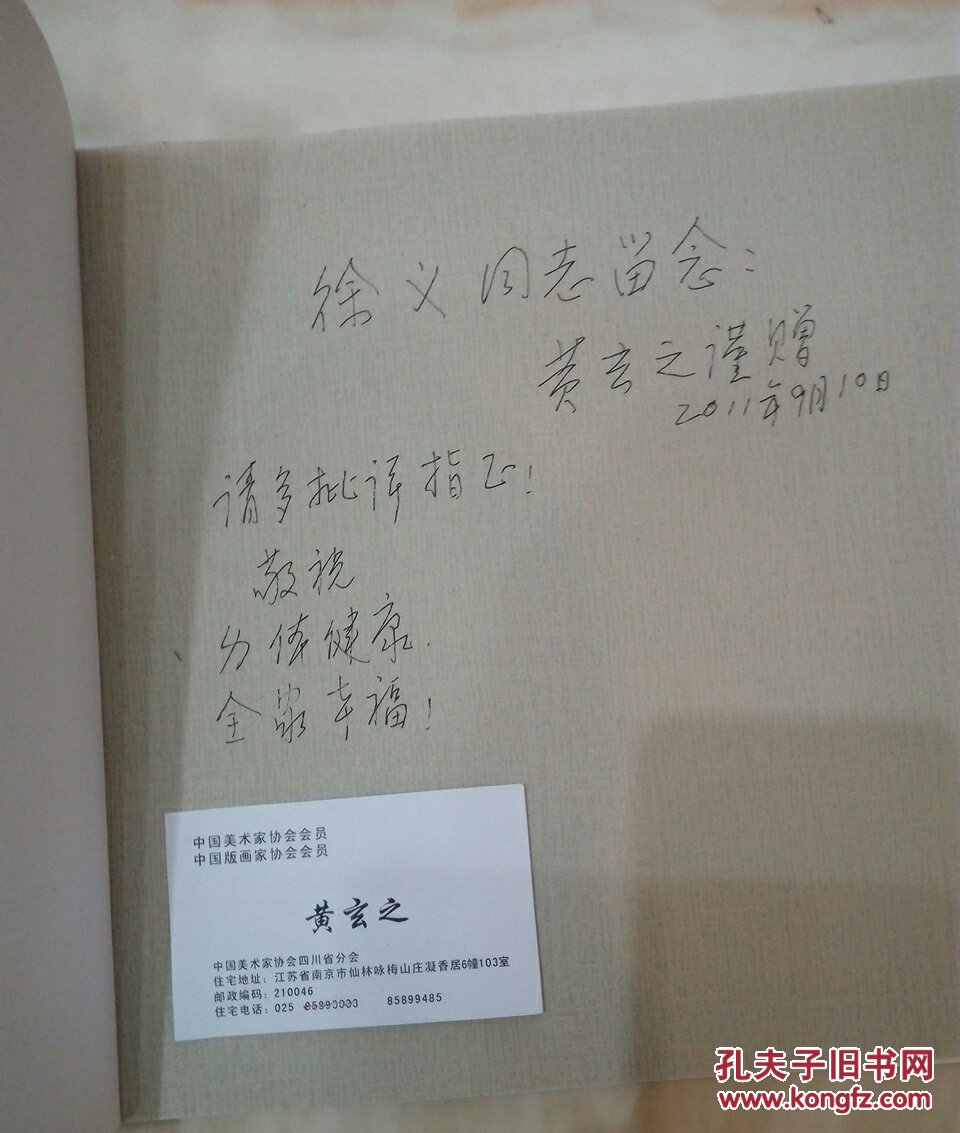 徐义同志留念：
黄玄之谨赠
2011年9月10日
请多批评指正！
敬祝
身体健康.
全家幸福！
中国美术家协会会员
中国版画家协会会员
黄玄之
中国美术家协会四川省分会
住宅地址：江苏省南京市仙林咏梅山庄凝香居6幢103室
邮政编码：210046
住宅电话：025 85899485
孔夫子旧书网
www.kongfz.com